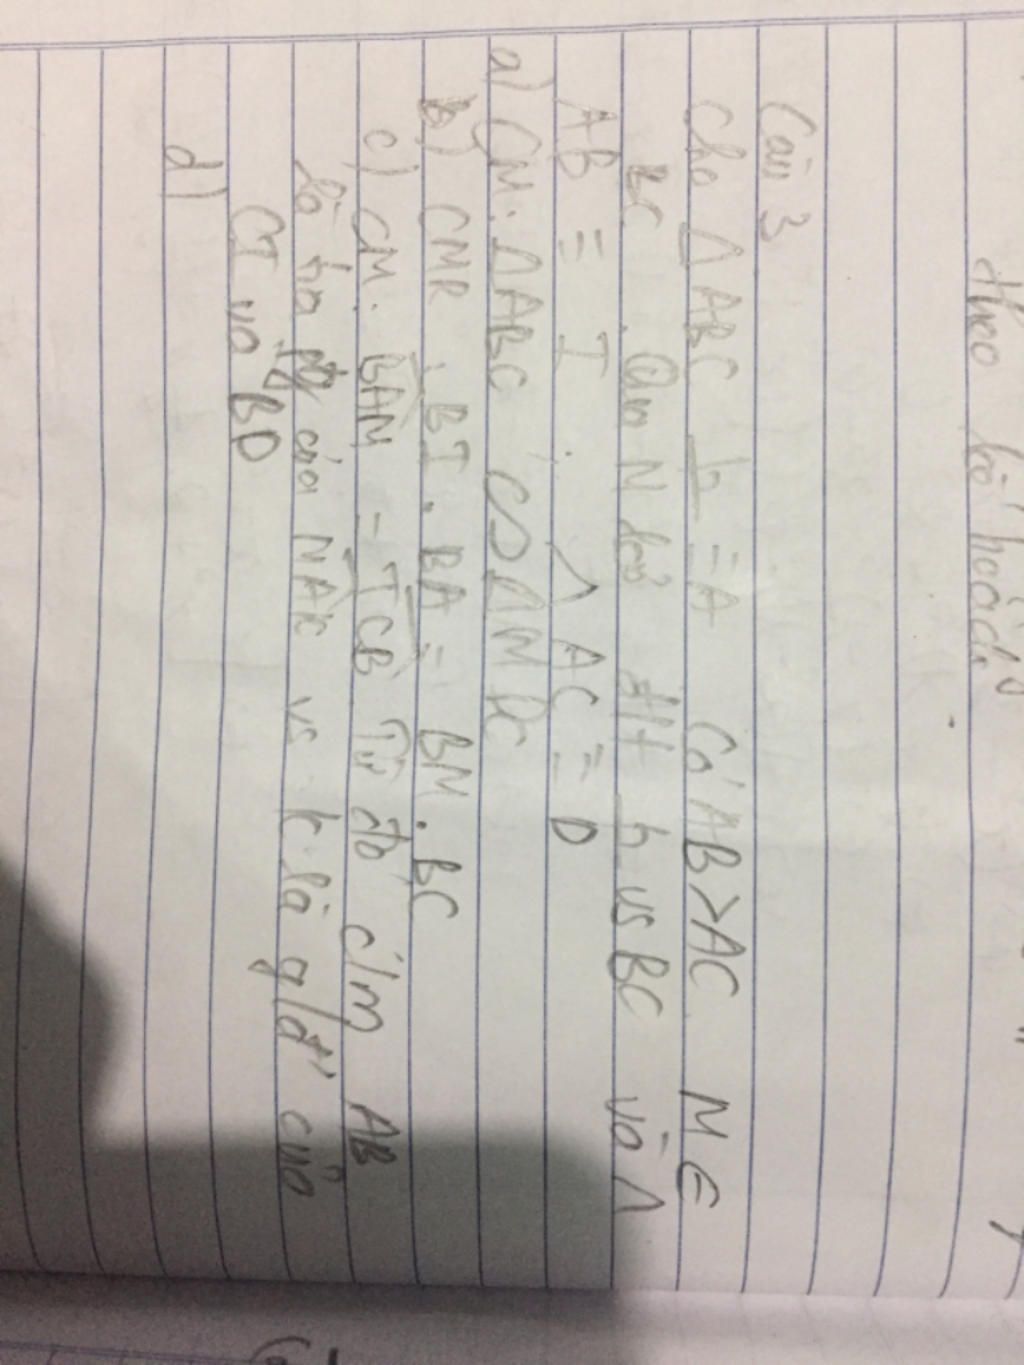 theo kế hoạch
Câu 3
Cho Δ ABC ⊥ = A Có AB>AC M ∈
BC . Qua M kẻ đ/t ⊥ vs BC và ∩
AB ≡ I . ∩ AC ≡ D
a) CM. ΔABC ∽ ΔMDC
b) CMR : BI . BA = BM . BC
c) CM. BAM = ICB Từ đó c/m AB
là tia pg của MAK vs K là g/đ' của
CI và BD
d)